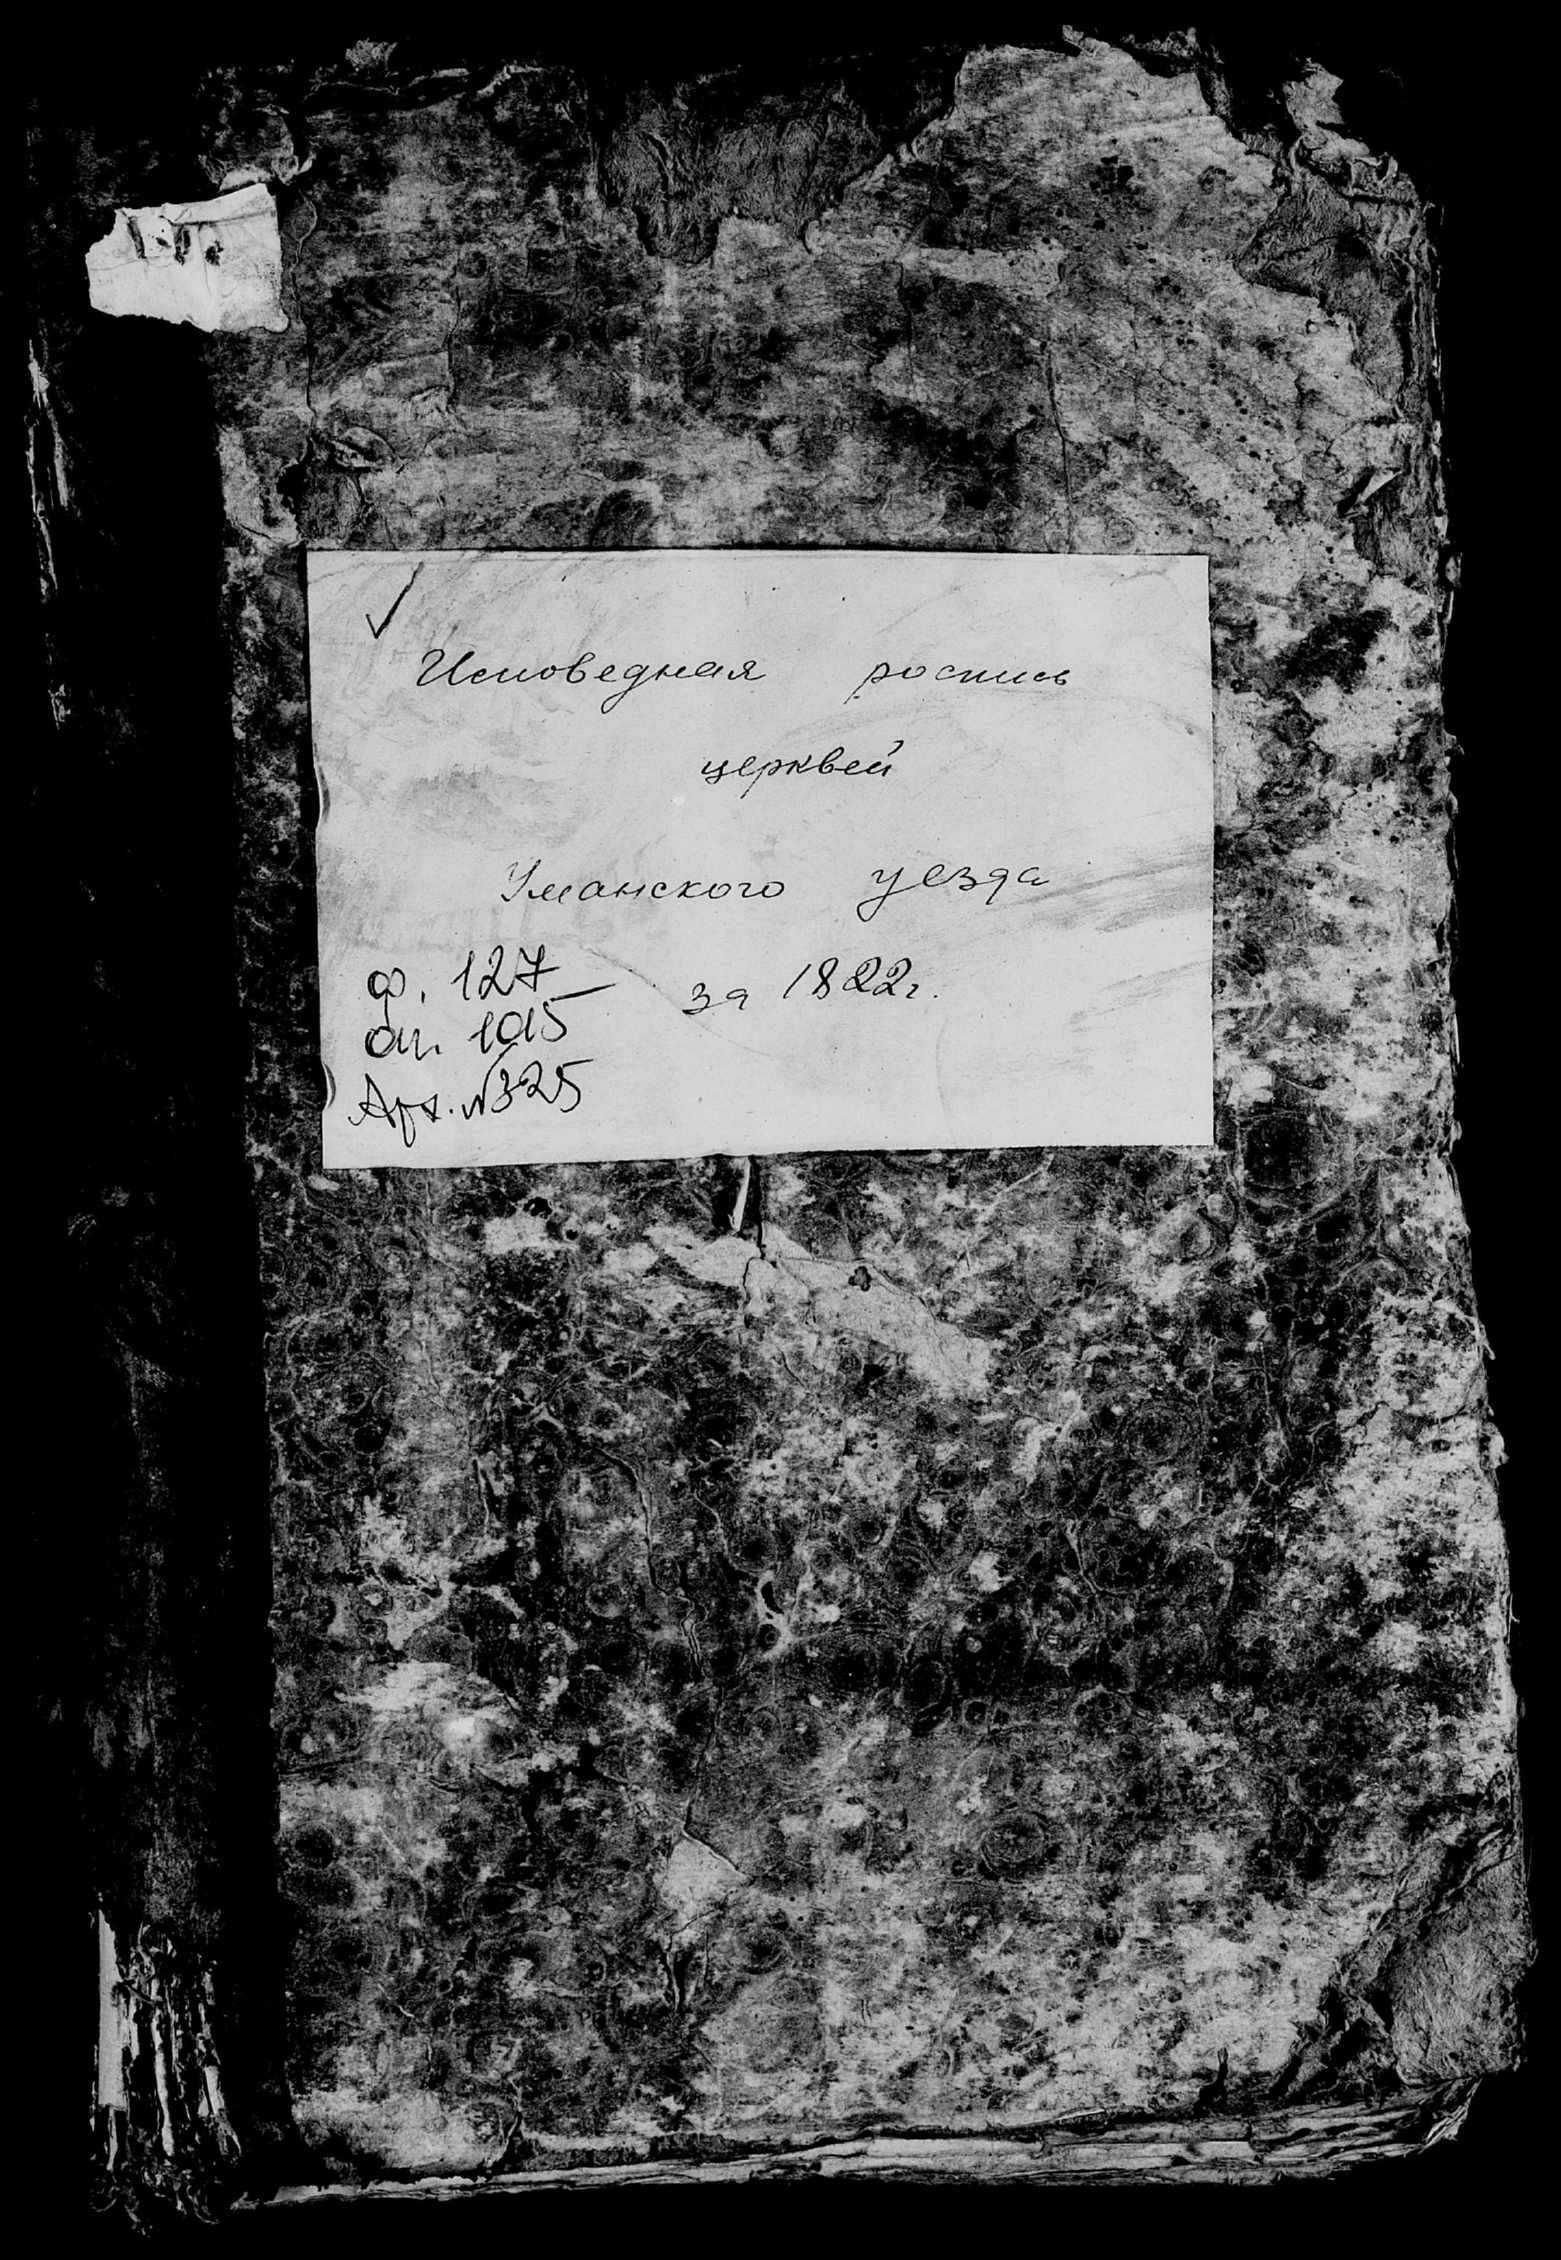 ✓
Исповедная роспись
церквей
Уманского уезда
за 1822г.
ф. 127
оп. 1015
Арх. №325